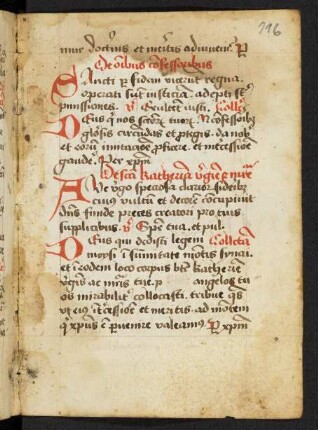 196
De omnibus confessoribus
Sancti p fidem vicerunt regna
operati sunt iusticiam adepti st
pmissiones. Exultent iusti. Collca
Deus q nos scorum tuorum confessorum
gloriosis circundas et ptegis. da nobis
et eorum imitacione pficere. et intercessione
gaudere. Per xpm
De scta Katherina virgine et mre
Ave virgo speciosa clarior sideribus
cuius vultum et decorem concupiuit
dns funde preces creatori pro tuis
supplicibus. Spe tua. et pul.
Deus qui dedisti legem Collecta
moysi in summitate montis synai.
et in eodem loco corpus bte katherine
virginis ac mris tue. p angelos tu
os mirabiliter collocasti. tribue qs
ut eius intercessione et meritis ad montem
q xpus e puenire valeamus. Per xpm